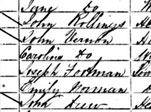 Jane do
John Rollings
John Vernon
Caroline do
Joseph Foreman
Emily Norman
John Drew